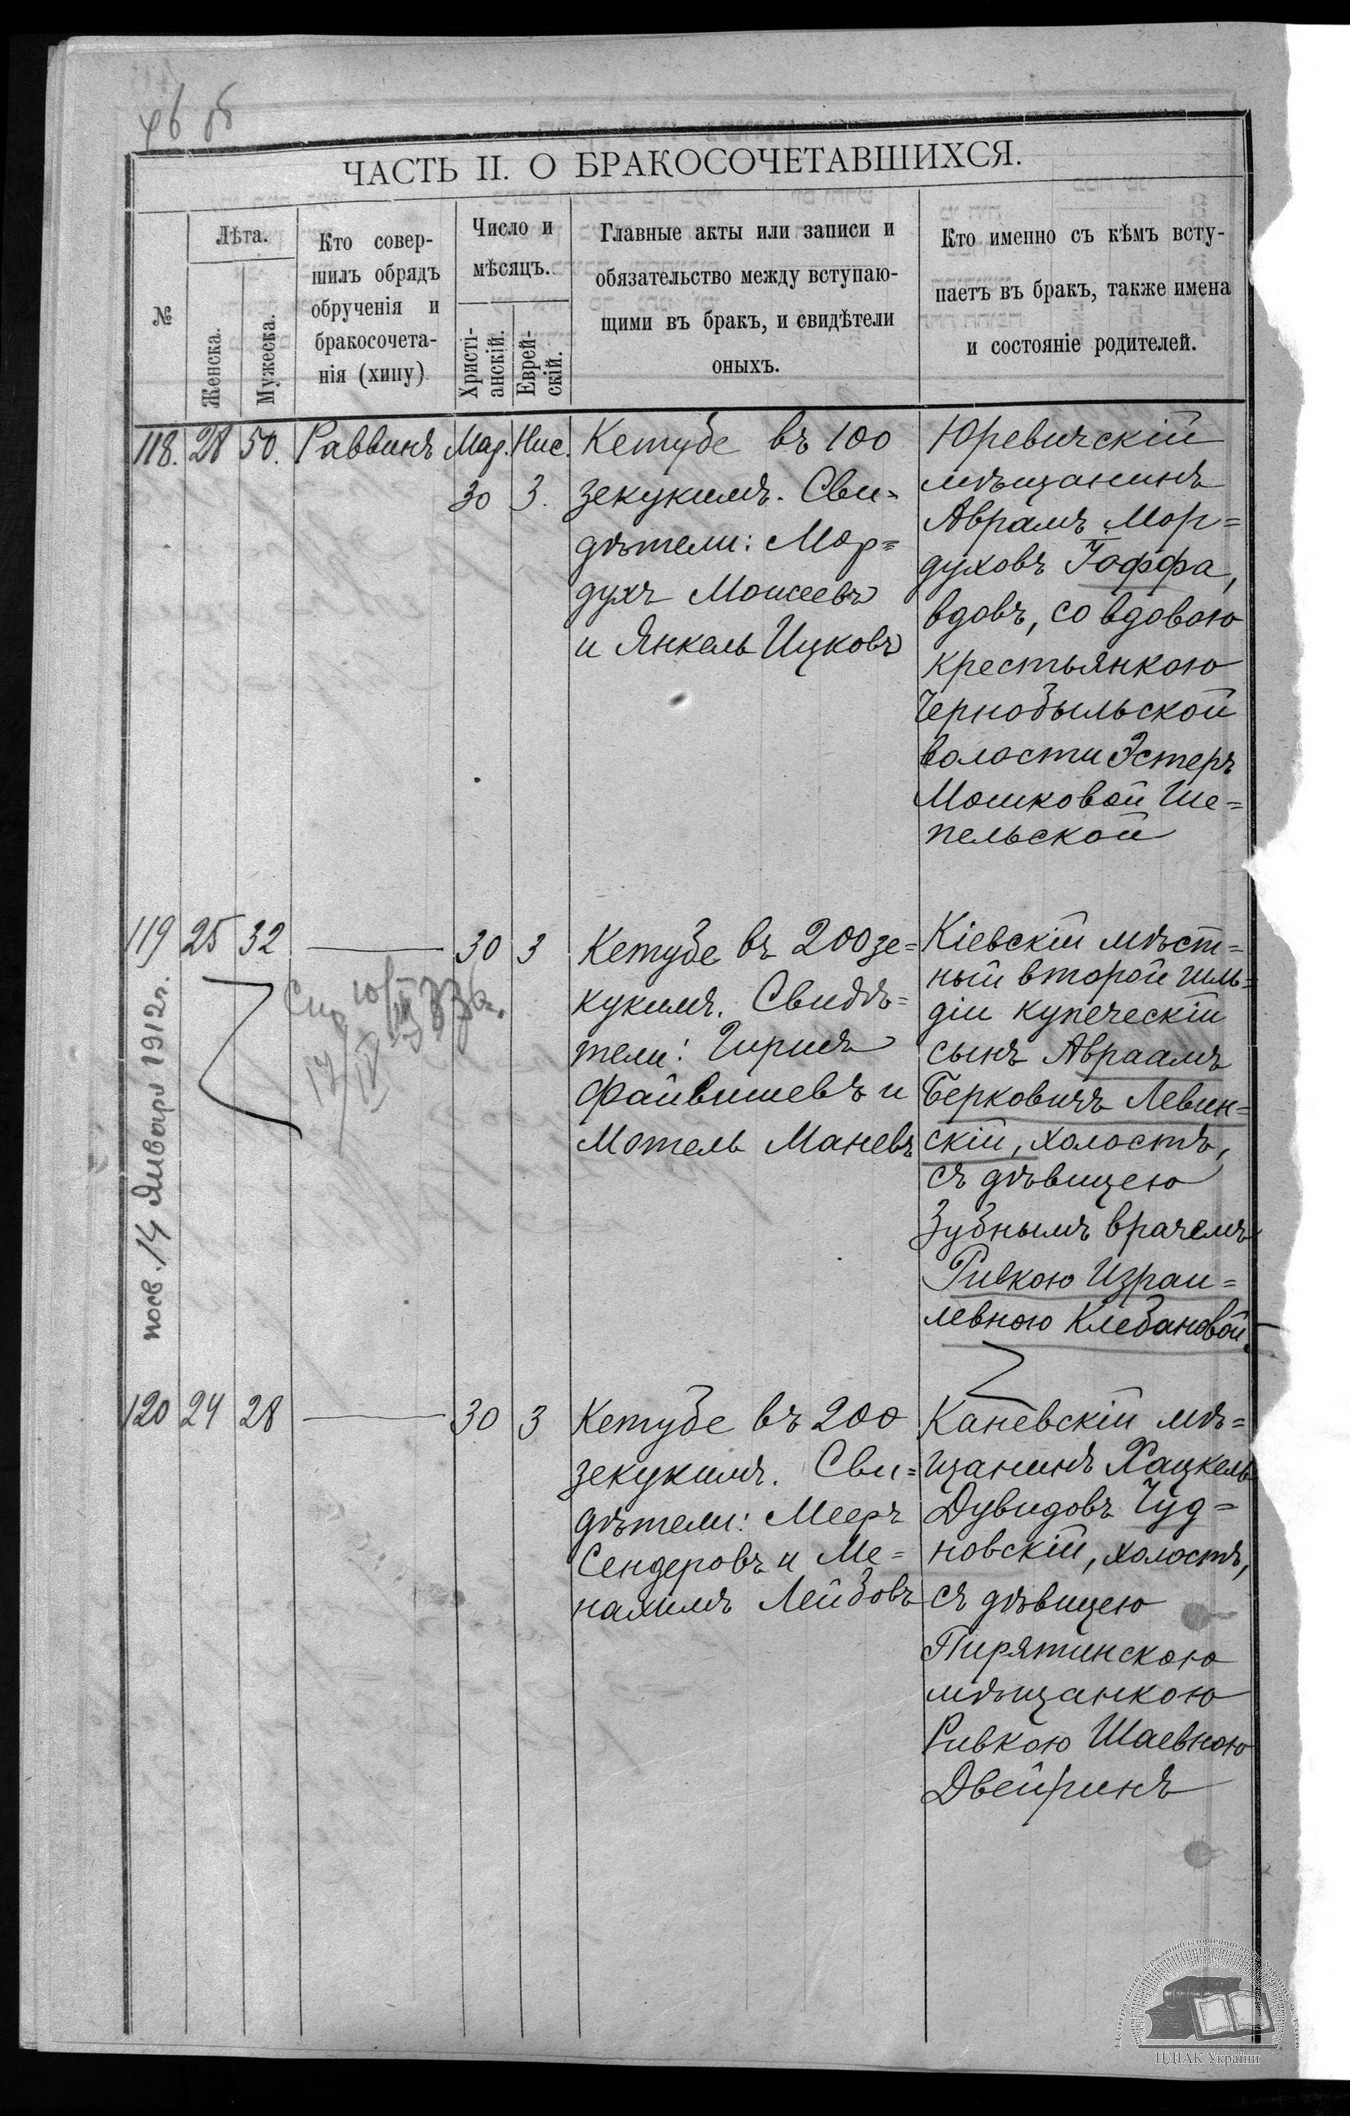 ЧАСТЬ II. О БРАКОСОЧЕТАВШИХСЯ.
№
Лѣта.
Женска.
Мужеска.
Кто совер-
шилъ обрядъ
обрученія и
бракосочета-
нія (хипу)
Число и
мѣсяцъ.
Христі-
анскій.
Еврей-
скій.
Главные акты или записи и
обязательство между вступаю-
щими въ бракъ, и свидѣтели
оныхъ.
Кто именно съ кѣмъ всту-
паетъ въ бракъ, также имена
и состояніе родителей.
118. 28 50. Раввинъ Мар. Нис.
30 3.
Кетубе въ 100
зекукимъ. Сви=
дѣтели: Мор=
духъ Моисеевъ
и Янкель Ицковъ
Юревичскій
мѣщанинъ
Аврамъ Мор=
духовъ Іоффа,
вдовъ, со вдовою
крестьянкою
Чернобыльской
волости Эстеръ
Мошковой Ше=
пельской
119 25 32 30 3
Кетубе въ 200 зе=
кукимъ. Свидѣ=
тели: Гиршъ
Файвишевъ и
Мотель Маневъ
Кіевскій мѣст=
ный второй гиль=
діи купеческій
сынъ Авраамъ
Берковичъ Левин=
скій, холостъ,
съ дѣвицею
Зубнымъ врачемъ
Ривкою Израи=
левною Клебановой.
14 Января 1912 г.
120 24 28 30 3
Кетубе въ 200
зекукимъ. Сви=
дѣтели: Мееръ
Сендеровъ и Ме=
нахимъ Лейбовъ
Каневскій мѣ=
щанинъ Хацкель
Дувидовъ Чуд=
новскій, холостъ,
съ дѣвицею
Пирятинскою
мѣщанкою
Ривкою Шаевною
Двейринъ
ЦДІАК України